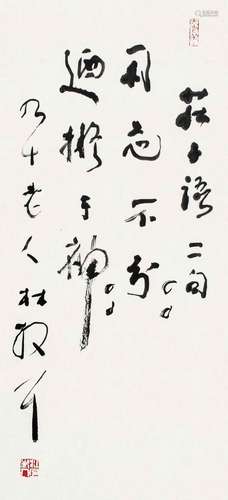 莊子語二句
用志不分
迺擬于神
九十老人林散耳